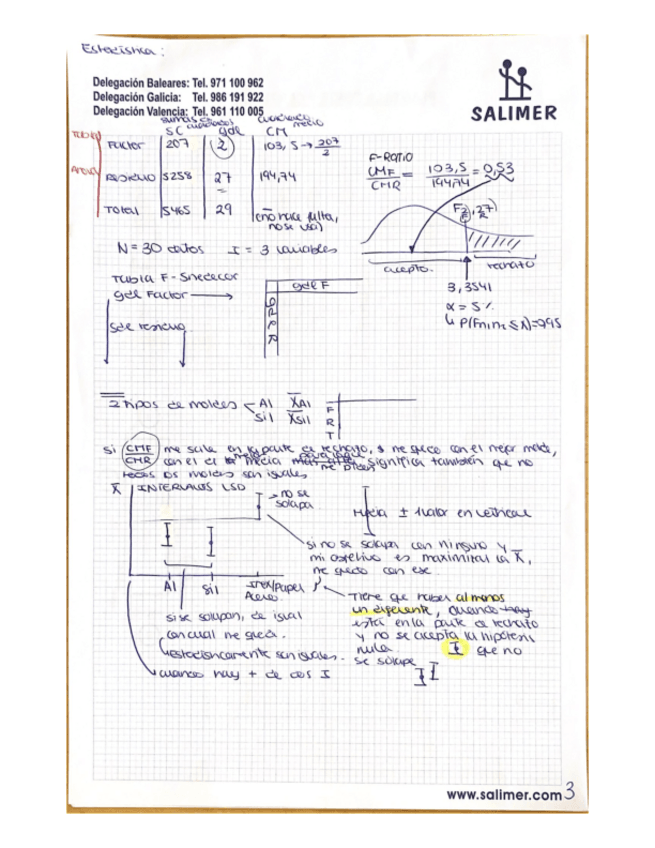 Estadística:
Delegación Baleares: Tel. 971 100 962
Delegación Galicia: Tel. 986 191 922
Delegación Valencia: Tel. 961 110 005
SALIMER
sumas cuadrados
cuadrado medio
SC gdl CM
Factor 207 2 103,5 → 207/2
Residuo 5258 27 194,74
Total 5465 29 (no hace falta, no se usa)
F-RATIO
CMF/CMR = 103,5/194,74 = 0,53
F 2, 27
acepto. rechazo
3,3541
α = 5%
N = 30 datos I = 3 variables
Tabla F-Snedecor
gdl Factor →
gdl F
gdl residuo
2 tipos de moldes
Al X̄Al
Sil X̄Sil
F
R
T
si CMF/CMR me sale en la parte de rechazo, me quedo con el mejor molde,
con el de media significa también que no
todos los moldes son iguales
X̄ INTERVALOS LSD
→ no se solapa
Media ± valor en vertical
si no se solapa con ninguno y
mi objetivo es maximizar la X̄,
me quedo con ese.
Al Sil Papel
Tiene que haber al menos
un diferente, cuando hay
está en la parte de rechazo
y no se acepta la hipótesis
nula I que no
se solape
si se solapan, da igual
con cual me quede.
estadísticamente son iguales.
cuando hay + de dos I
www.salimer.com 3